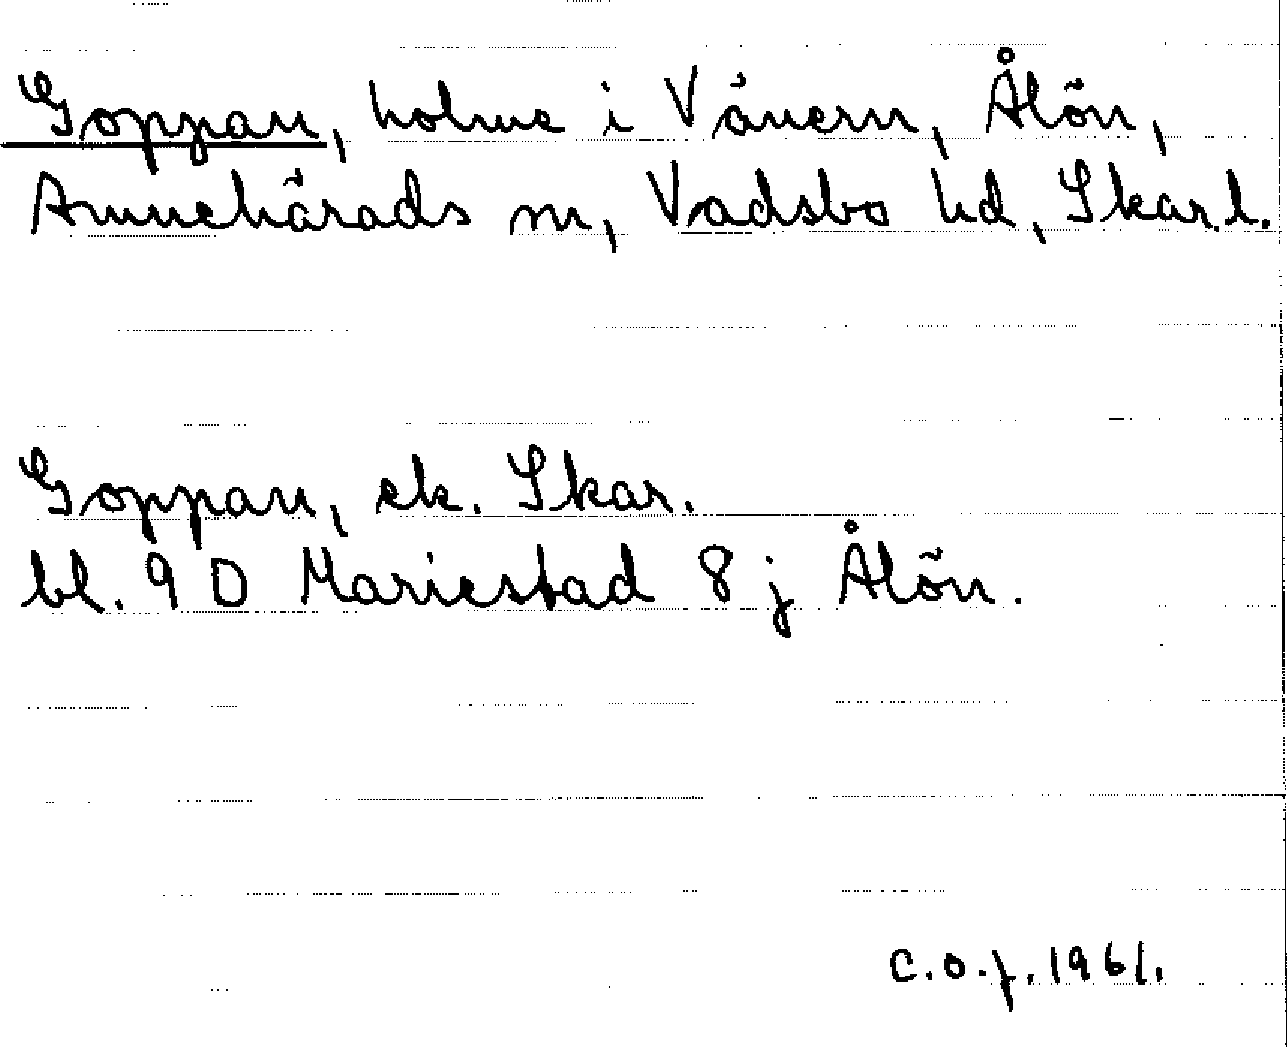 Goppan, holme i Vänern, Ålön,
Amnehärads sn, Vadsbo hd, Skar.l.
Goppan, ek. Skar.
bl. 9 D Mariestad 8 j Ålön.
C.O.f. 1961.